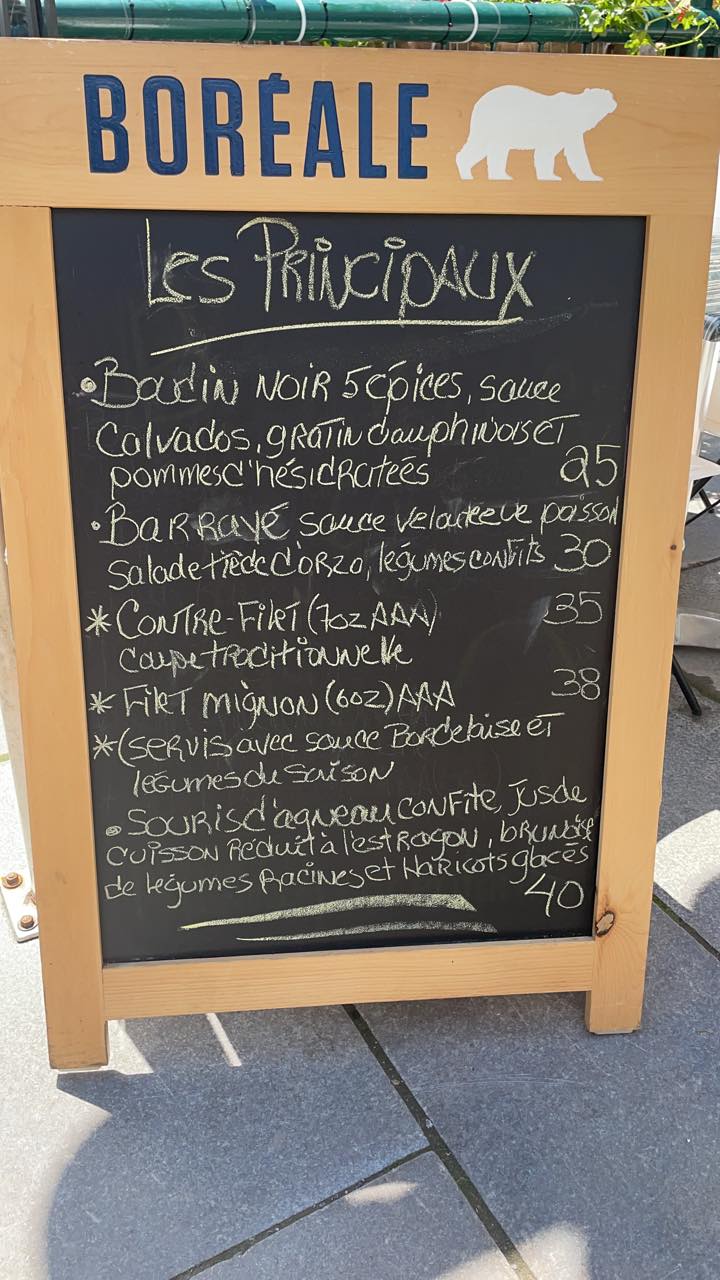 BORÉALE
Les Principaux
• Boudin noir 5 épices, sauce
Calvados, gratin dauphinois et
pommes d'hésidratées 25
• Bar rayé sauce veloutée de poisson
salade tiède d'orzo, légumes confits 30
* Contre-Filet (7oz AAA) 35
coupe traditionnelle
* Filet mignon (6oz) AAA 38
* (servis avec sauce Bordelaise et
légumes du saison
• Souris d'agneau confite, jus de
cuisson réduit à l'estragon, brunoise
de légumes racines et haricots glacés
40